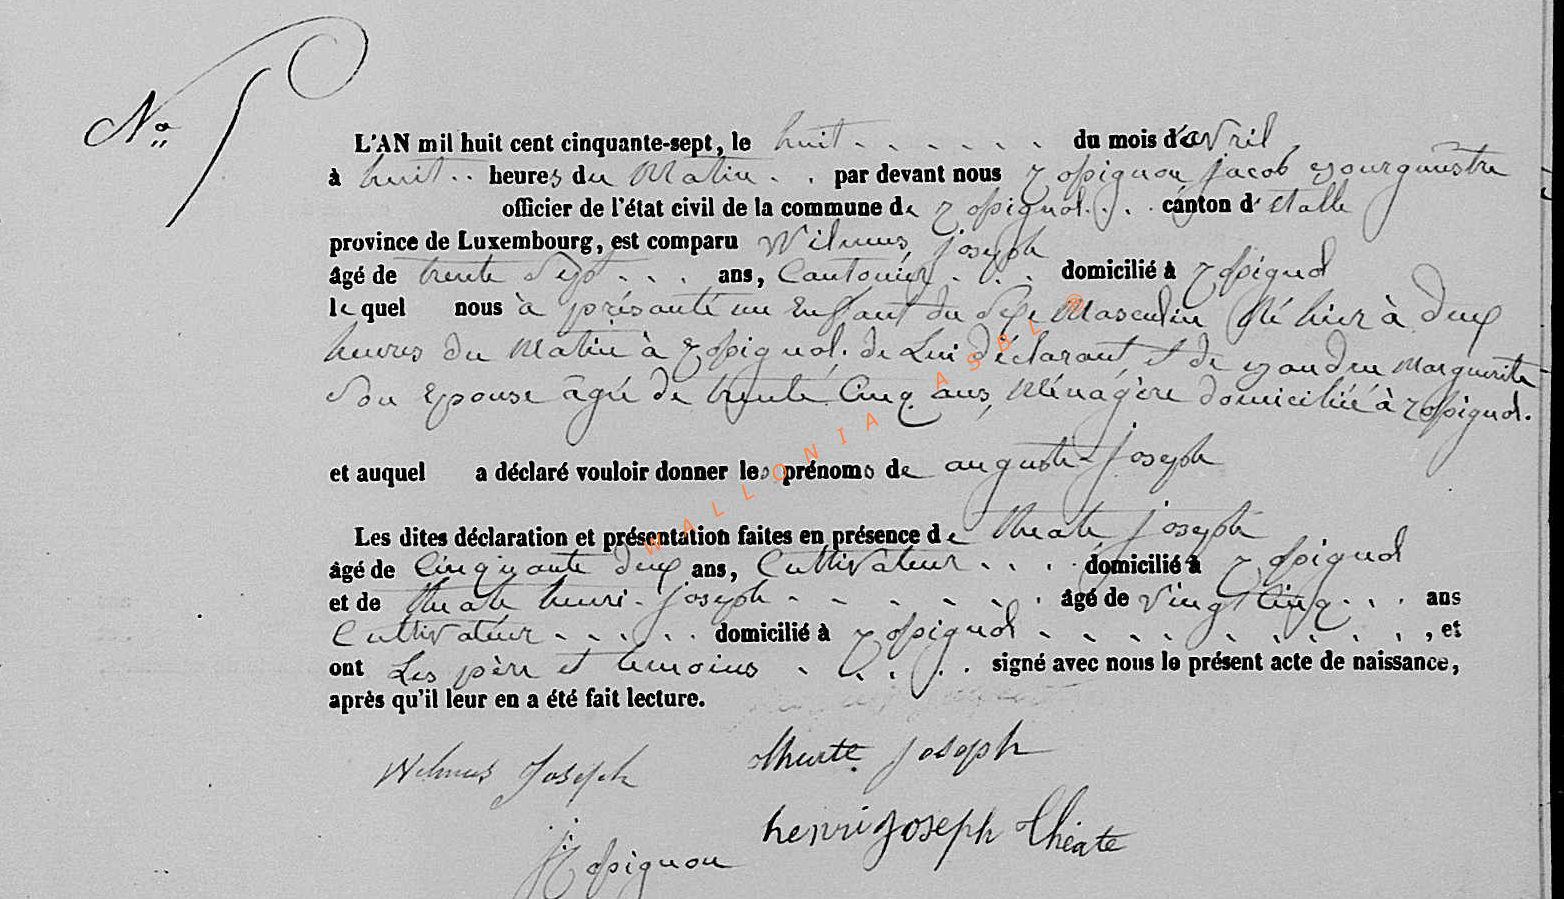 N°
L'AN mil huit cent cinquante-sept, le huit du mois d'avril
à huit heures du Matin par devant nous Jacob Bourgmestre
officier de l'état civil de la commune de canton d'Etalle
province de Luxembourg, est comparu Wilmus, joseph
âgé de trente Sept ans, Cantonier domicilié à
lequel nous à présanté un Enfant du Sexe Masculin Né hier à deux
heures du Matin à de Lui déclarant, et de Marguerite
Son Epouse âgée de trente Cinq ans, Ménagère domiciliée à
et auquel a déclaré vouloir donner les prénoms de auguste-joseph
Les dites déclaration et présentation faites en présence de theate joseph
âgé de Cinquante deux ans, Cultivateur domicilié à
et de theate henri-joseph âgé de vingt Cinq ans
Cultivateur domicilié à , et
ont Les père et temoins signé avec nous le présent acte de naissance,
après qu'il leur en a été fait lecture.
Wilmus Joseph
joseph
henri joseph théate
WALLONIA ASBL ®